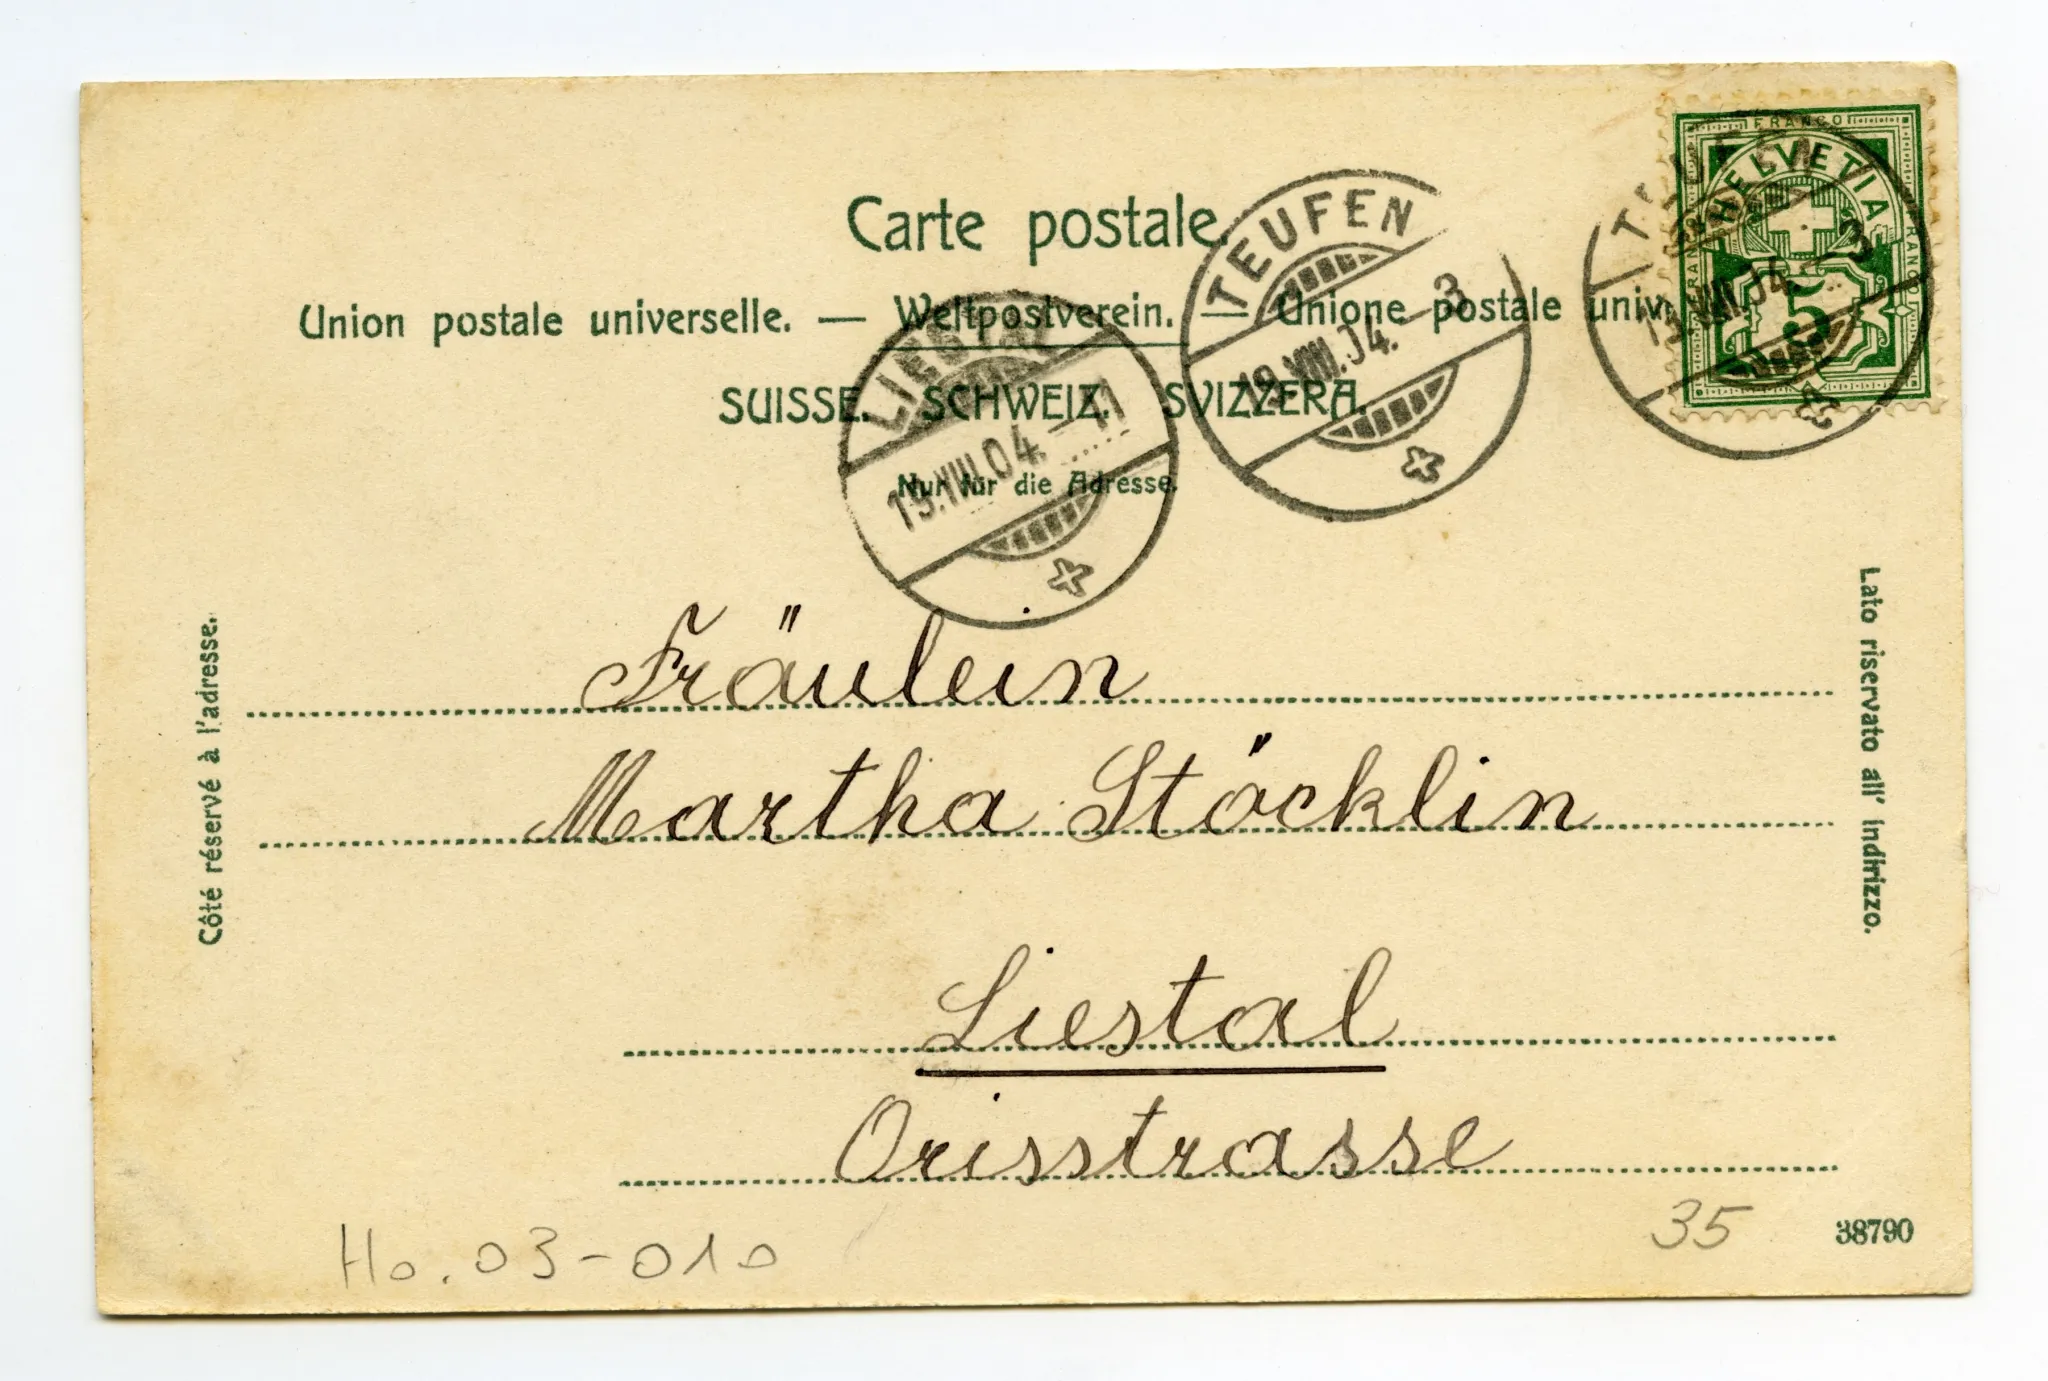 Carte postale.
Union postale universelle. — Weltpostverein. — Unione postale univ
SUISSE. SCHWEIZ. SVIZZERA.
Nur für die Adresse.
TEUFEN
19.VIII.04.–3
LIESTAL
19.VIII.04.–11
FRANCO
HELVETIA
FRANCO
FRANCO
5
Côté réservé à l'adresse.
Lato riservato all' indirizzo.
Fräulein
Martha Stöcklin
Liestal
Orisstrasse
Ho.03-010
35
38790